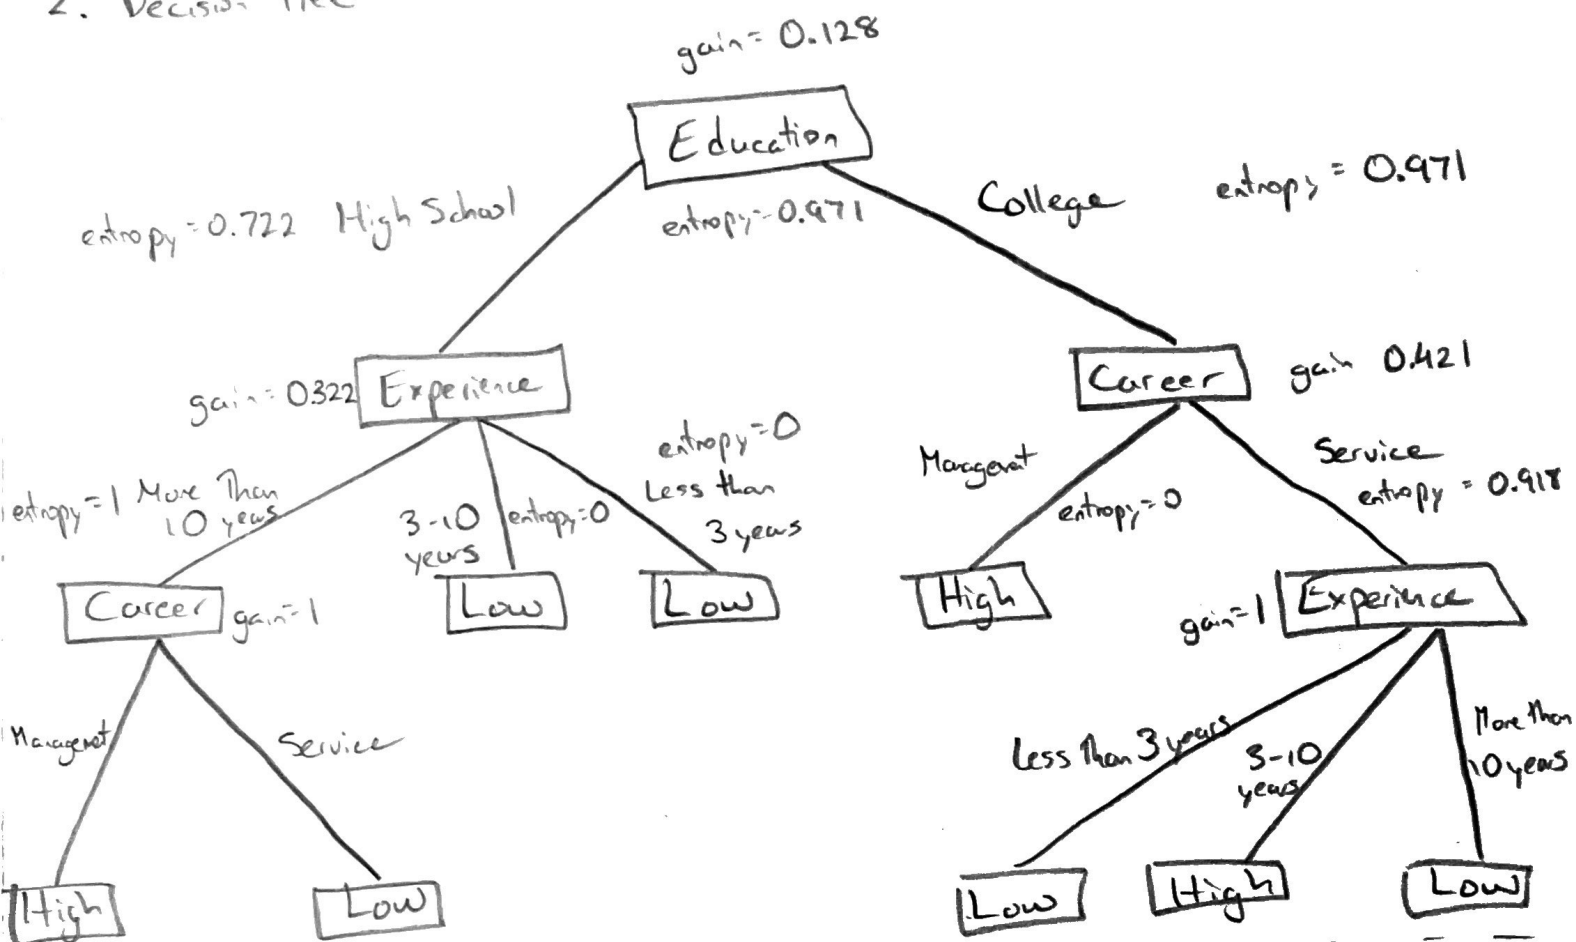 2. Decision Tree
gain = 0.128
Education
entropy = 0.722 High School
entropy = 0.971
College
entropy = 0.971
gain = 0.322 Experience
Career
gain 0.421
entropy = 1 More Than
10 years
3-10
years
entropy = 0
entropy = 0
Less than
3 years
Managemet
entropy = 0
Service
entropy = 0.918
Career
gain = 1
Low
Low
High
gain = 1
Experience
Managemet
Service
Less Than 3 years
3-10
years
More than
10 years
High
Low
Low
High
Low